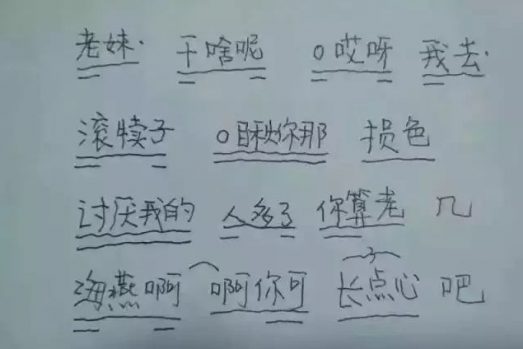 老妹· 干啥呢 0哎呀 我去·
滚犊子 0瞅你那 损色
讨厌我的 人多了 你算老 几
海燕啊 啊你可 长点心 吧